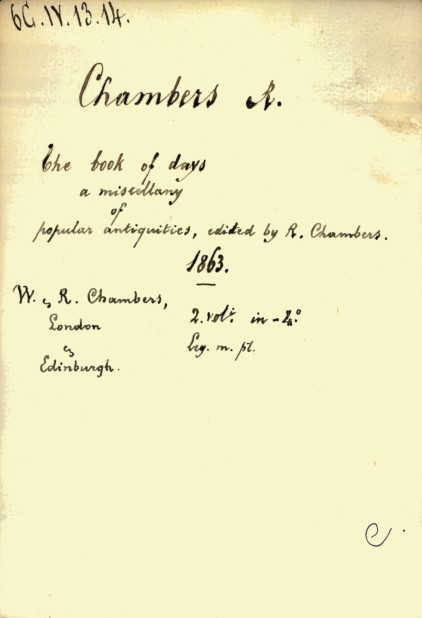 6G.IV.13.14.
Chambers R.
The book of days
a miscellany
of
popular antiquities, edited by R. Chambers.
1863.
W. & R. Chambers,
London
&
Edinburgh.
2. vol. in-4°
Leg. m. pl.
C.